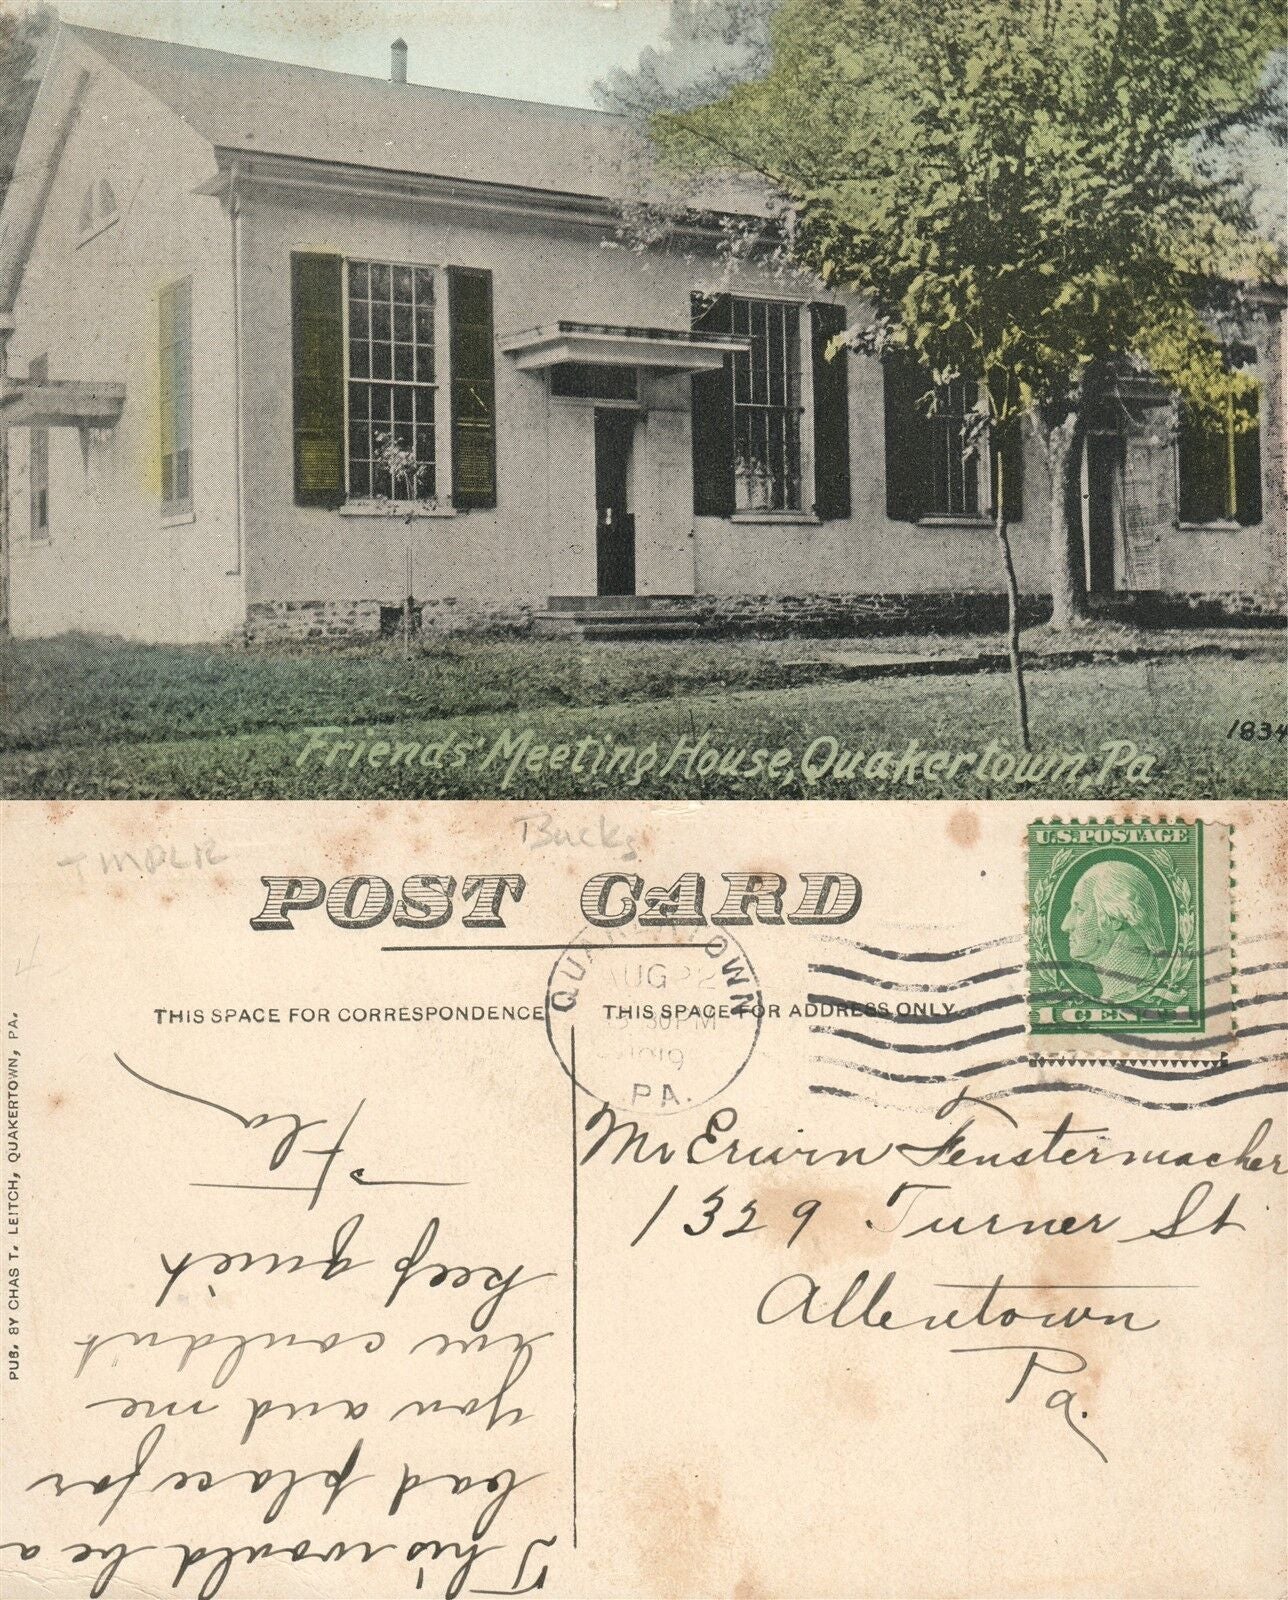 Friends' Meeting House, Quakertown, Pa
1834
Bucks
POST CARD
U.S. POSTAGE
1 CENT 1
QUAKERTOWN
AUG 22
30 PM
1919
PA.
THIS SPACE FOR CORRESPONDENCE
THIS SPACE FOR ADDRESS ONLY
PUB. BY CHAS T. LEITCH, QUAKERTOWN, PA.
Mr Erwin Fenstermacher
1329 Turner St
Allentown
Pa.
This would be a
bad place for
you and me
we couldnt
keep quiet
Flo